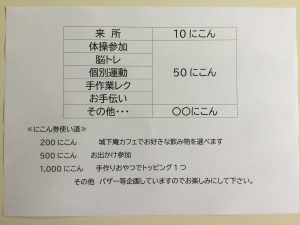 来所 10にこん
体操参加
脳トレ
個別運動 50にこん
手作業レク
お手伝い
その他・・・ 〇〇にこん
≪にこん券使い道≫
200にこん 城下庵カフェでお好きな飲み物を選べます
500にこん お出かけ参加
1,000にこん 手作りおやつでトッピング1つ
その他 バザー等企画していますのでお楽しみにして下さい。